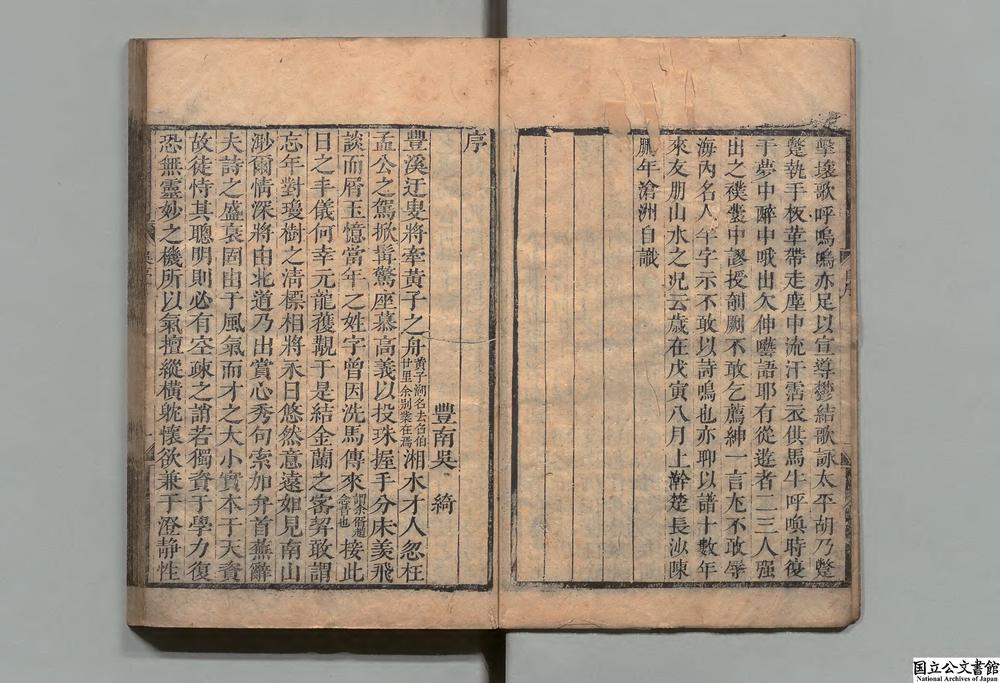 擊壤歌呼嗚嗚亦足以宣導鬱結歌詠太平胡乃蹩
躄執手板革帶走塵中流汗霑衣供馬牛呼喚時復
于夢中醉中哦出欠伸囈語耶有從遊者二三人强
出之襆囊中謬授剞劂不敢乞薦紳一言尤不敢辱
海內名人一字示不敢以詩鳴也亦聊以譜十數年
來友朋山水之況云歲在戊寅八月上澣楚長沙陳
鵬年滄洲自識
序
豐南吳綺
豐溪迂叟將牽黃子之舟黃子洞名去岩伯廿里余别業在焉湘水才人忽枉
孟公之駕掀髯驚座慕高義以投珠握手分床羨飛
談而屑玉憶當年之姓字曾因洗馬傳來接此
日之丰儀何幸元龍獲覯于是結金蘭之密契敢謂
忘年對瓊樹之清標相將永日悠然意遠如見南山
渺爾情深將由北道乃出賞心秀句索加弁首蕪辭
夫詩之盛衰固由于風氣而才之大小實本于天資
故徒恃其聰明則必有空疎之誚若獨資于學力復
恐無靈妙之機所以氣擅縱橫躭懷欲兼于澄静性
国立公文書館
National Archives of Japan